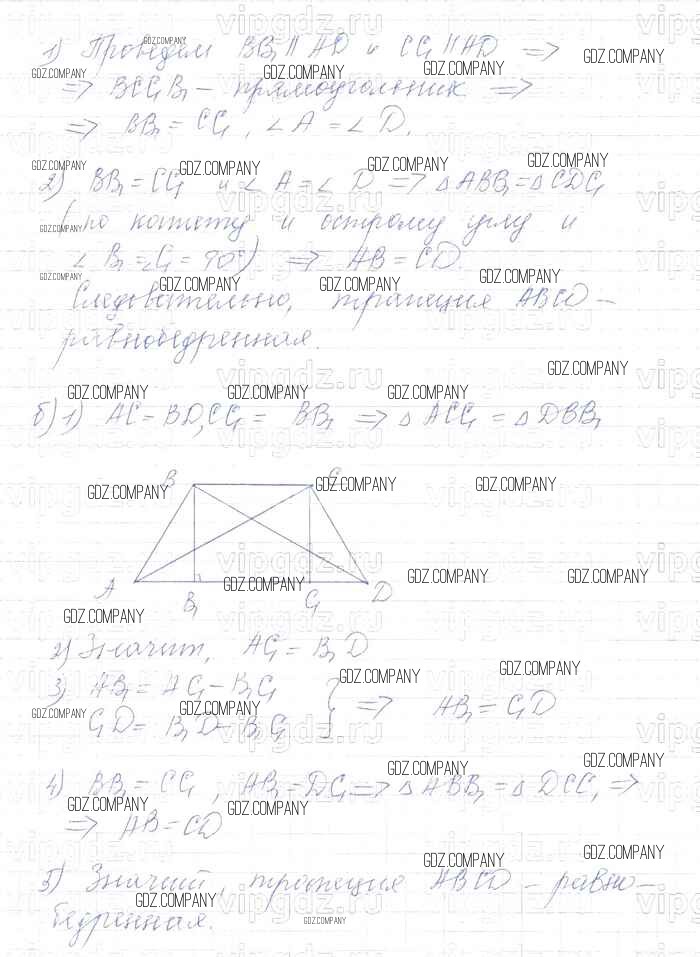 1) Проведем BB₁ || AD и CC₁ || AD ⇒
⇒ BCC₁B₁ – прямоугольник ⇒
⇒ BB₁ = CC₁, ∠A = ∠D.
2) BB₁ = CC₁ и ∠A = ∠D ⇒ △ABB₁ = △CDC₁
(по катету и острому углу и
∠B₁ = ∠C₁ = 90°) ⇒ AB = CD.
Следовательно, трапеция ABCD –
равнобедренная.
б) 1) AC = BD, CC₁ = BB₁ ⇒ △ACC₁ = △DBB₁
B C
A B₁ C₁ D
2) Значит, AC₁ = B₁D
3) AB₁ = AC₁ – B₁C₁
C₁D = B₁D – B₁C₁ } ⇒ AB₁ = C₁D
4) BB₁ = CC₁, AB₁ = DC₁ ⇒ △ABB₁ = △DCC₁ ⇒
⇒ AB = CD
5) Значит, трапеция ABCD – равно-
бедренная.
GDZ.COMPANY
vipgdz.ru